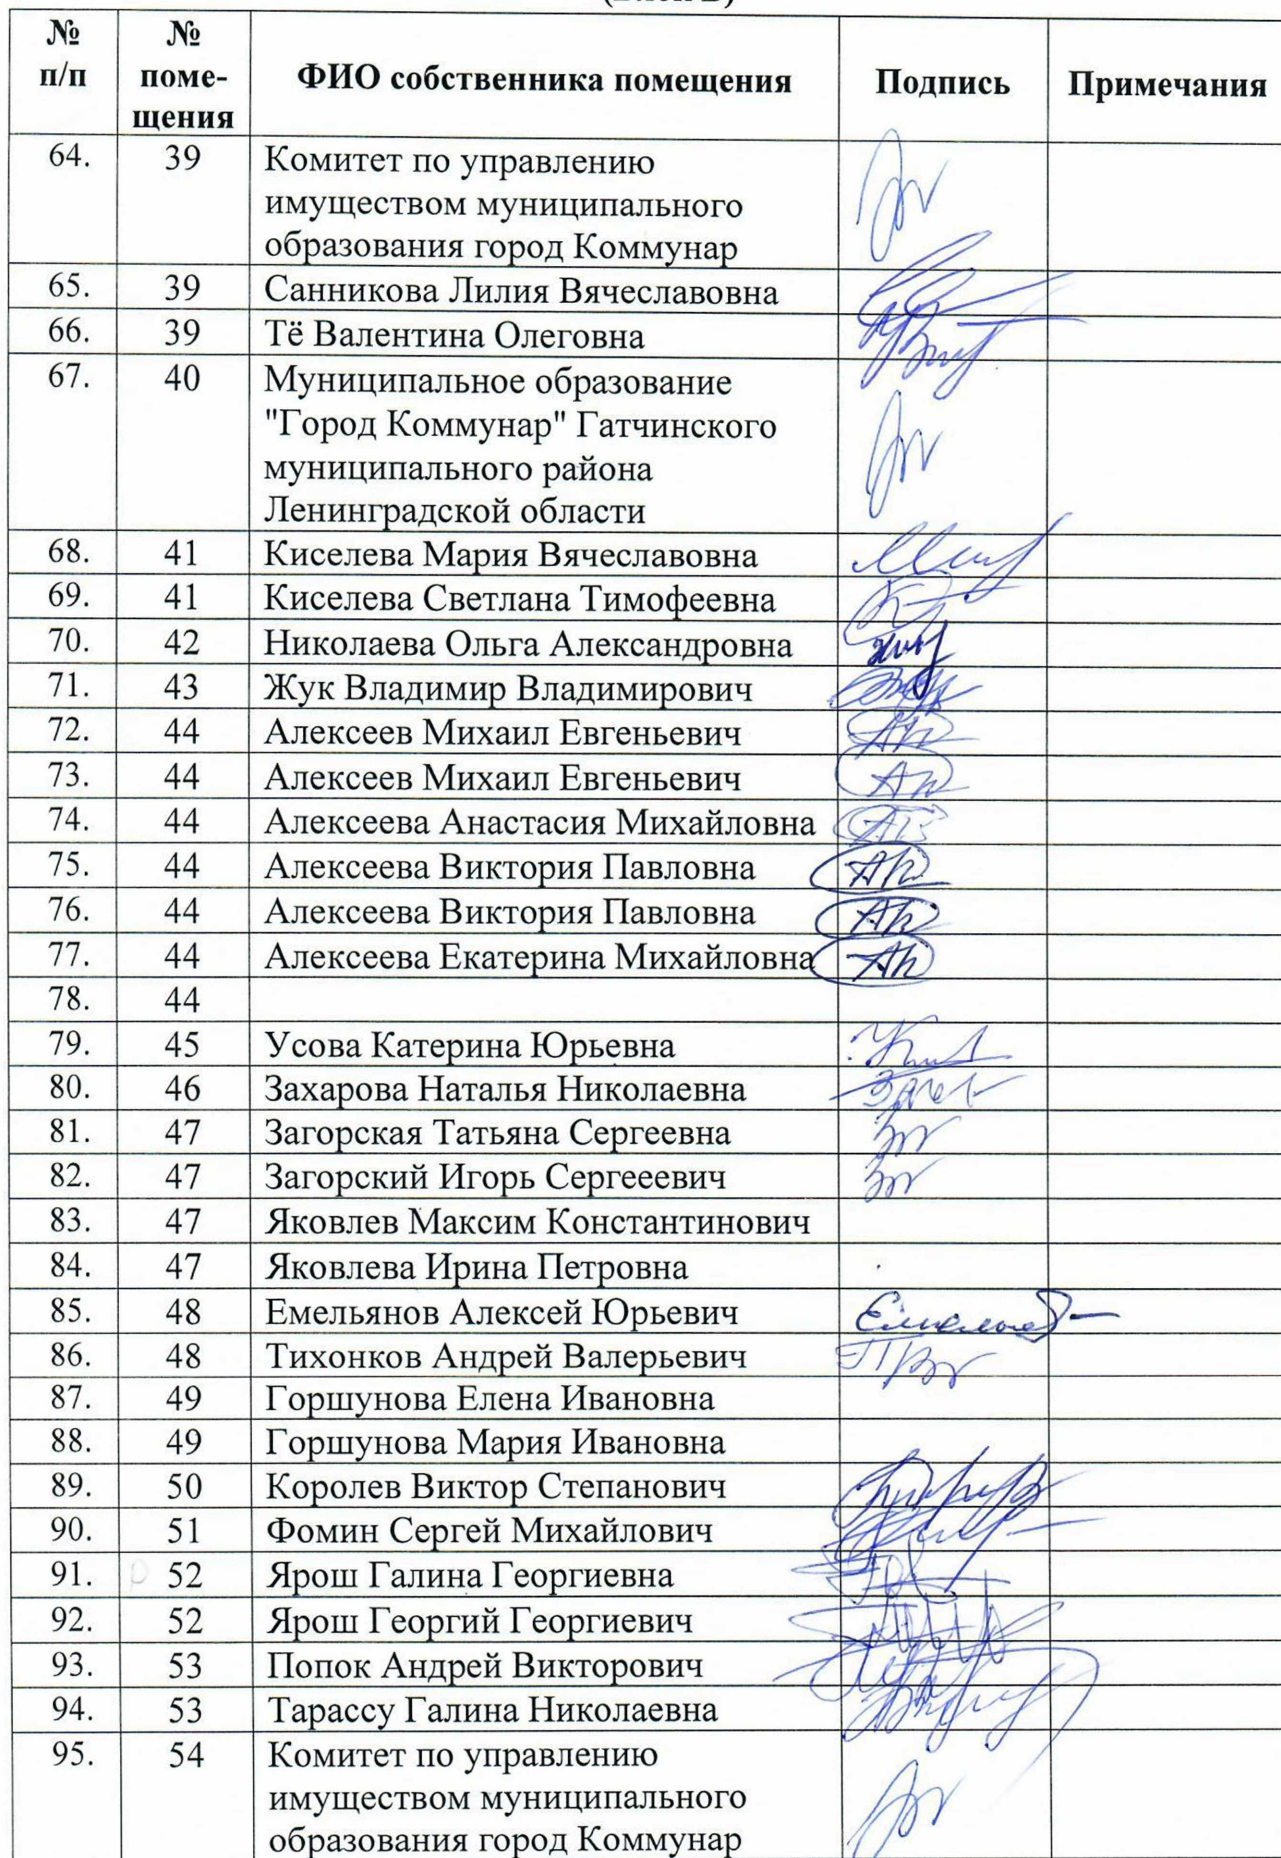 № п/п № поме-щения ФИО собственника помещения Подпись Примечания
64. 39 Комитет по управлению
имуществом муниципального
образования город Коммунар
65. 39 Санникова Лилия Вячеславовна
66. 39 Тё Валентина Олеговна
67. 40 Муниципальное образование
"Город Коммунар" Гатчинского
муниципального района
Ленинградской области
68. 41 Киселева Мария Вячеславовна
69. 41 Киселева Светлана Тимофеевна
70. 42 Николаева Ольга Александровна
71. 43 Жук Владимир Владимирович
72. 44 Алексеев Михаил Евгеньевич
73. 44 Алексеев Михаил Евгеньевич
74. 44 Алексеева Анастасия Михайловна
75. 44 Алексеева Виктория Павловна
76. 44 Алексеева Виктория Павловна
77. 44 Алексеева Екатерина Михайловна
78. 44
79. 45 Усова Катерина Юрьевна
80. 46 Захарова Наталья Николаевна
81. 47 Загорская Татьяна Сергеевна
82. 47 Загорский Игорь Сергееевич
83. 47 Яковлев Максим Константинович
84. 47 Яковлева Ирина Петровна
85. 48 Емельянов Алексей Юрьевич
86. 48 Тихонков Андрей Валерьевич
87. 49 Горшунова Елена Ивановна
88. 49 Горшунова Мария Ивановна
89. 50 Королев Виктор Степанович
90. 51 Фомин Сергей Михайлович
91. 52 Ярош Галина Георгиевна
92. 52 Ярош Георгий Георгиевич
93. 53 Попок Андрей Викторович
94. 53 Тарассу Галина Николаевна
95. 54 Комитет по управлению
имуществом муниципального
образования город Коммунар